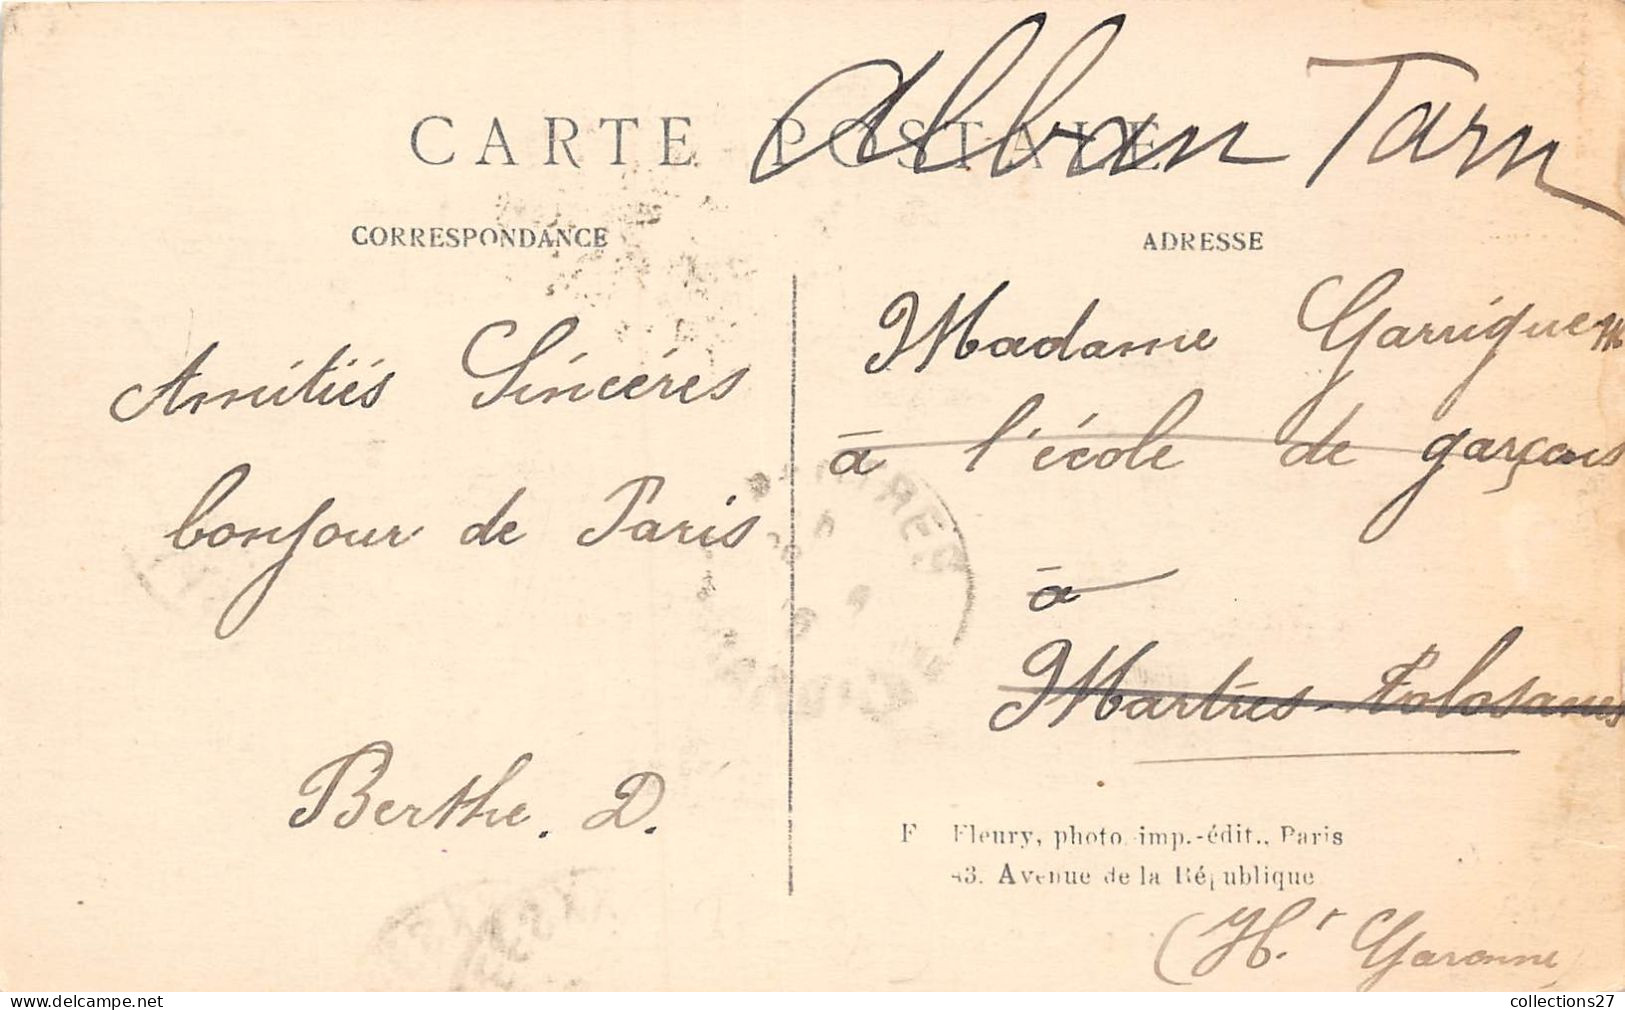 Alban Tarn
CARTE POSTALE
CORRESPONDANCE
ADRESSE
Amitiés Sincères
bonjour de Paris
Berthe. D.
Madame Garrigue
à l'école de garçons
à
Martres-Tolosanes
F Fleury, photo.-imp.-édit., Paris
43. Avenue de la République
(H.te Garonne)
collections27